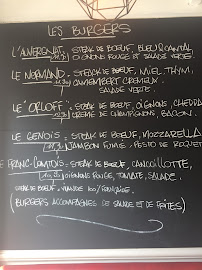 LES BURGERS
L'AUVERGNAT: STEAK DE BOEUF, BLEU & CANTAL
OIGNONS ROUGE ET SALADE VERTE.
LE NORMAND: STEACK DE BOEUF, MIEL, THYM,
CAMEMBERT CREMEUX
SALADE VERTE.
LE "ORLOFF": STEAK DE BOEUF, OIGNONS, CHEDDA
CREME DE CHAMPIGNONS, BACON.
LE GENOIS: STEAK DE BOEUF, MOZZARELLA
JAMBON FUMÉ - PESTO DE ROQUET
LE FRANC-COMTOIS: STEAK DE BOEUF, CANCOILLOTTE,
OIGNONS ROUGE, TOMATE, SALADE.
STEAK DE BOEUF: VIANDE 100% FRANÇAISE.
(BURGERS ACCOMPAGNÉS DE SAUCE ET DE FRITES)